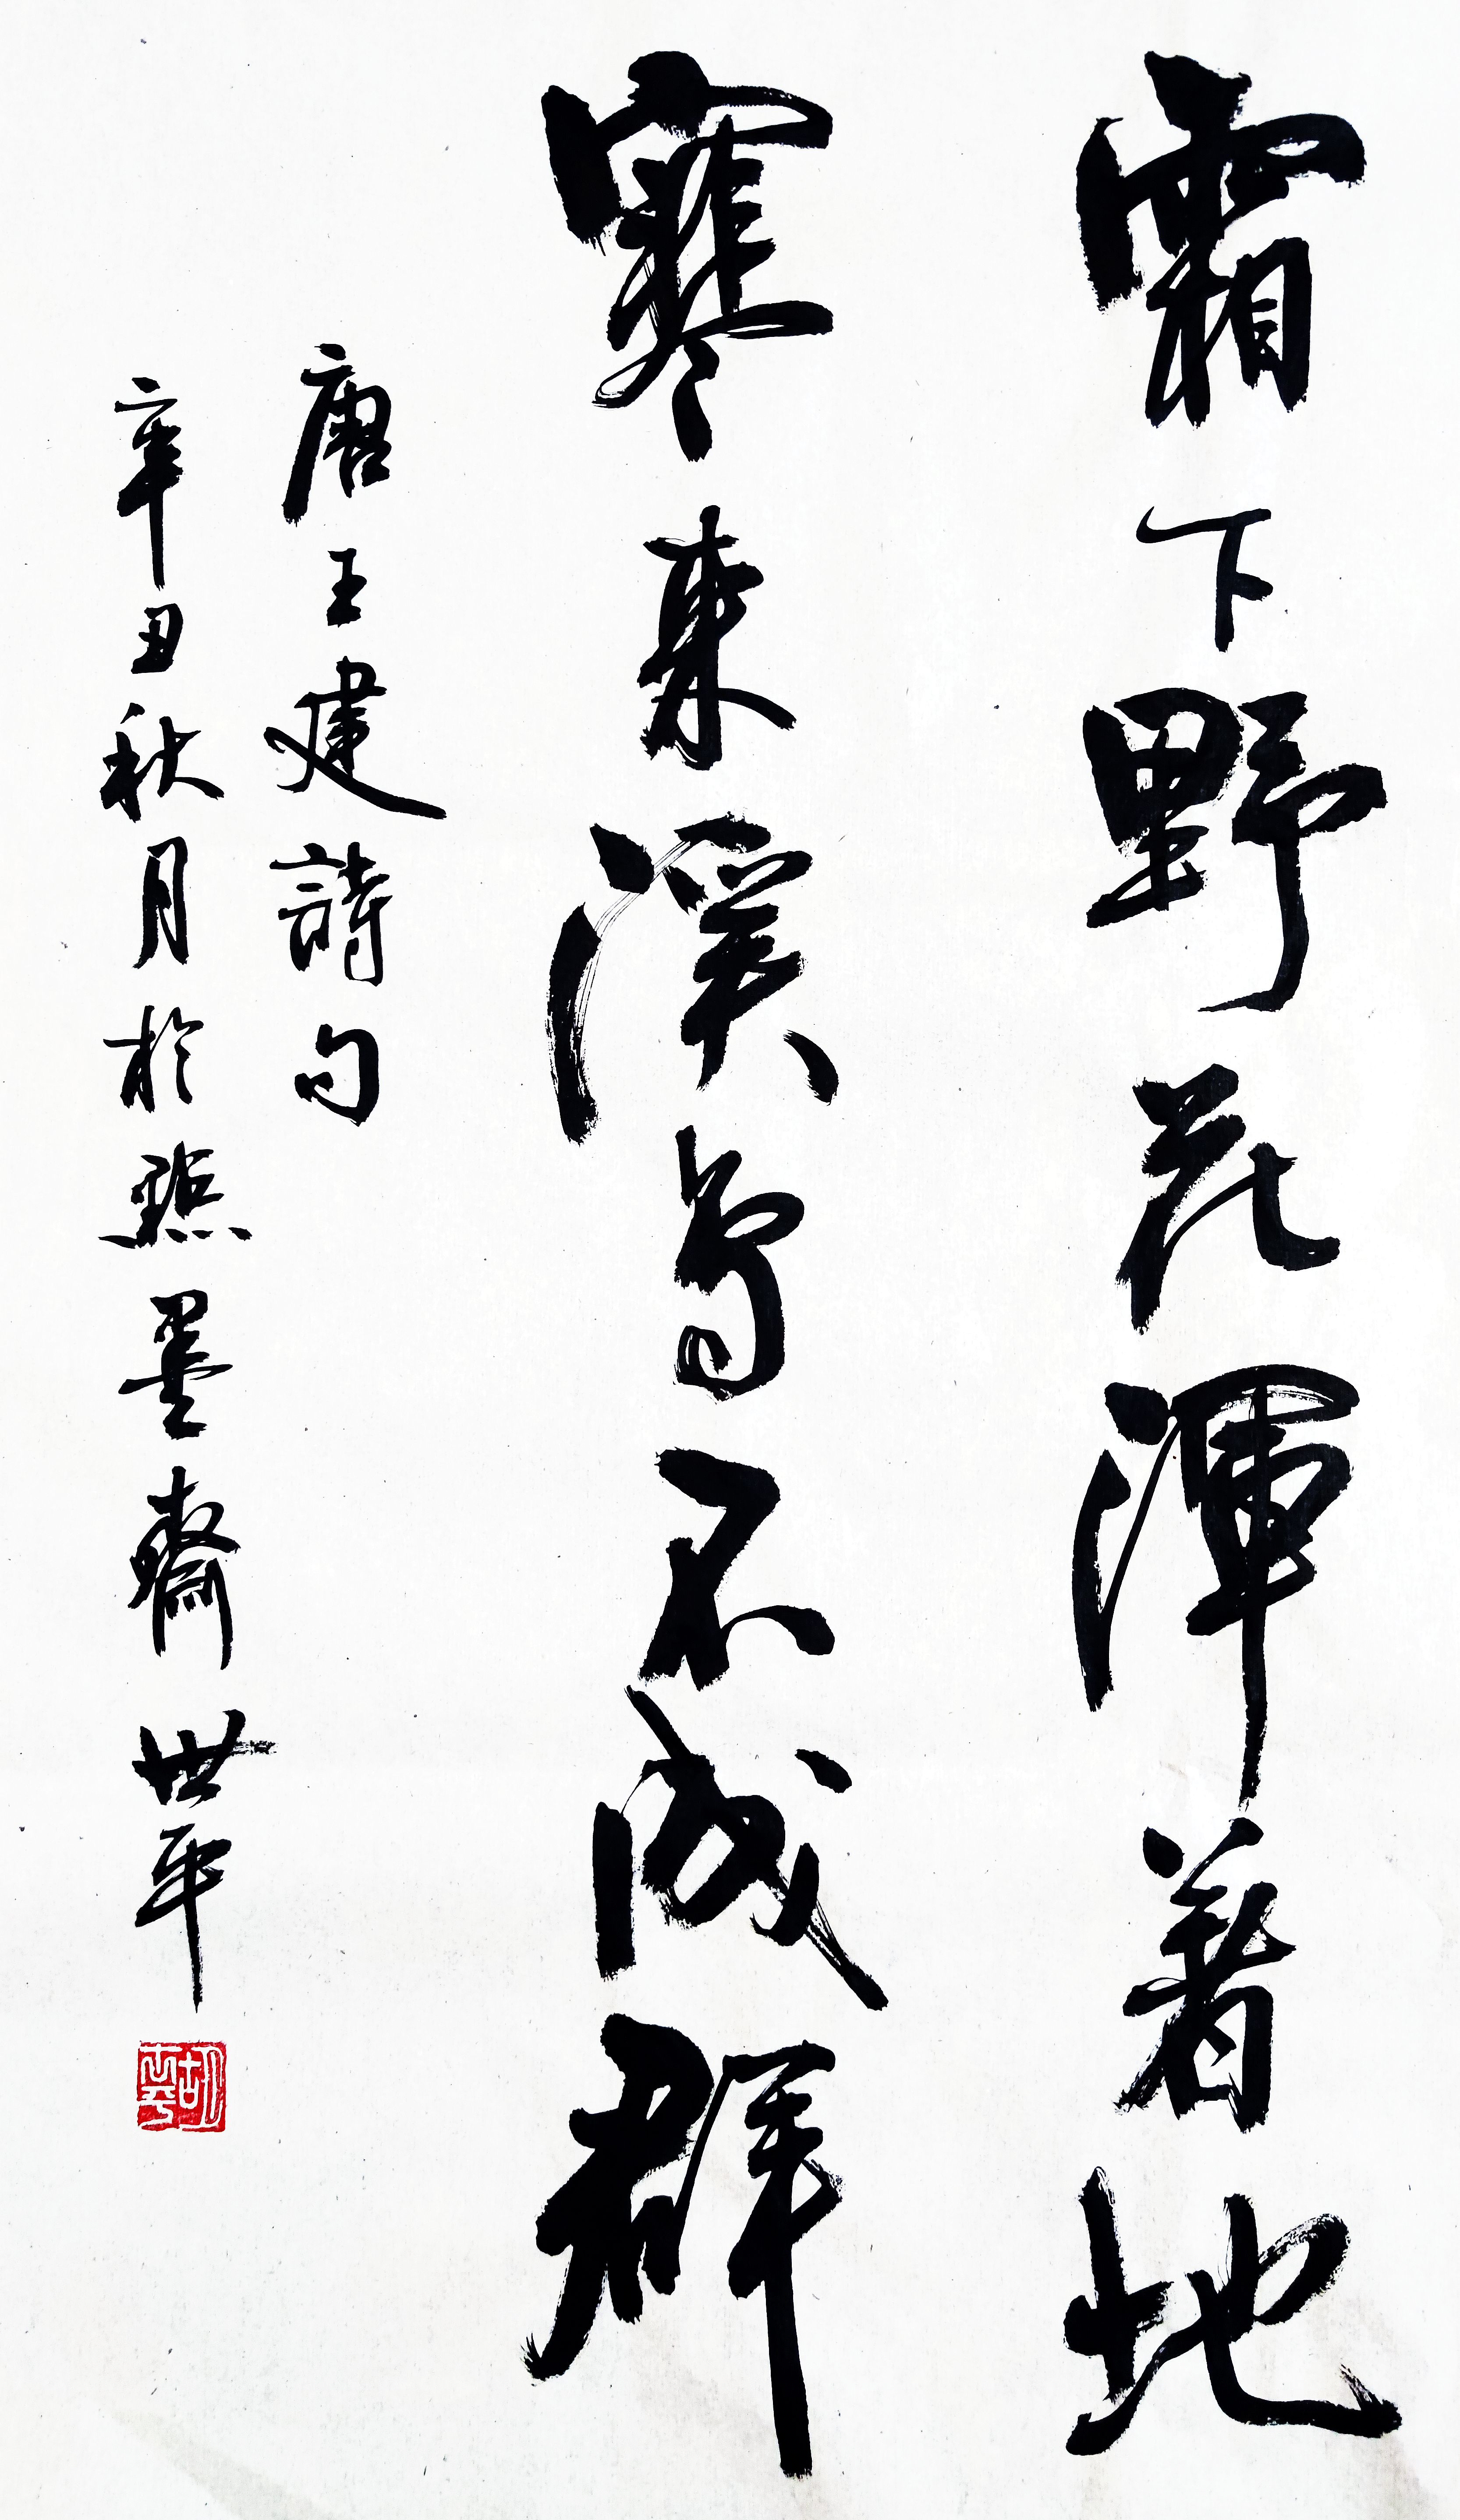 霜下野花渾著地
寒來溪鳥不成群
唐王建詩句
辛丑秋月於點墨齋世平